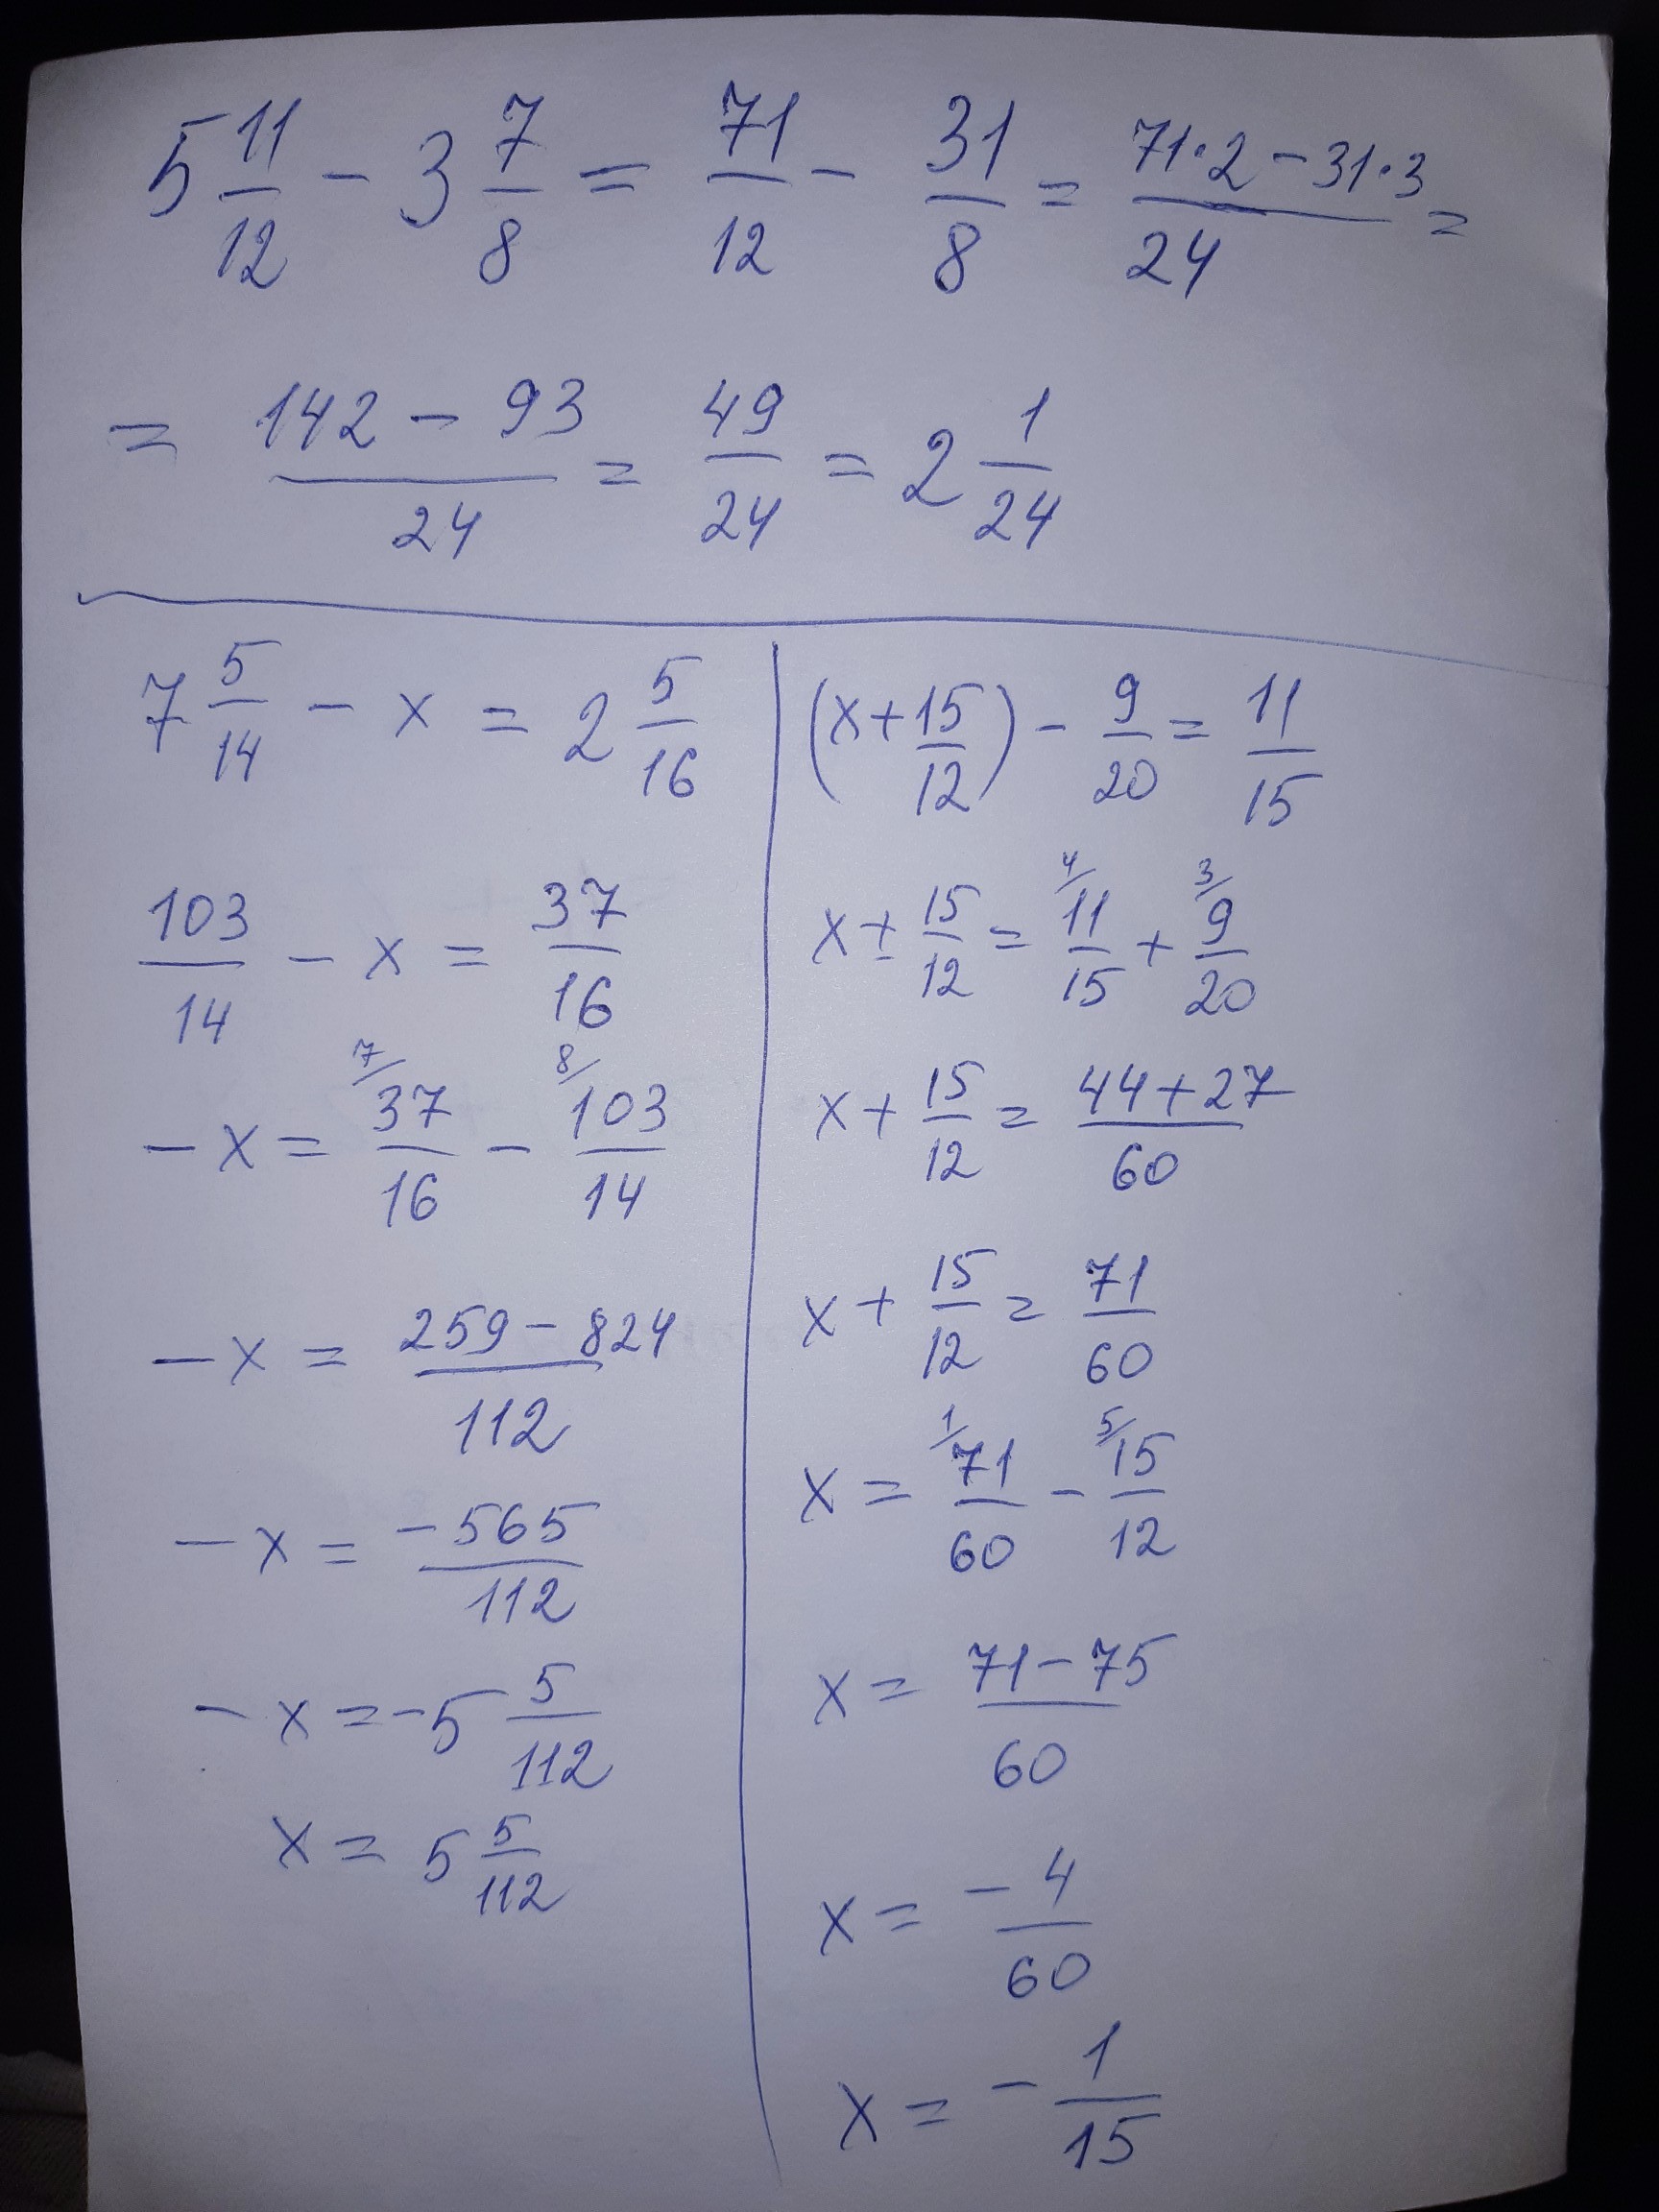 5 11/12 - 3 7/8 = 71/12 - 31/8 = (71·2 - 31·3)/24 =
= (142 - 93)/24 = 49/24 = 2 1/24
7 5/14 - x = 2 5/16
103/14 - x = 37/16
- x = 7/ 37/16 - 8/ 103/14
- x = (259 - 824)/112
- x = -565/112
- x = -5 5/112
x = 5 5/112
(x + 15/12) - 9/20 = 11/15
x + 15/12 = 4/ 11/15 + 3/ 9/20
x + 15/12 = (44 + 27)/60
x + 15/12 = 71/60
x = 1/ 71/60 - 5/ 15/12
x = (71 - 75)/60
x = -4/60
x = - 1/15